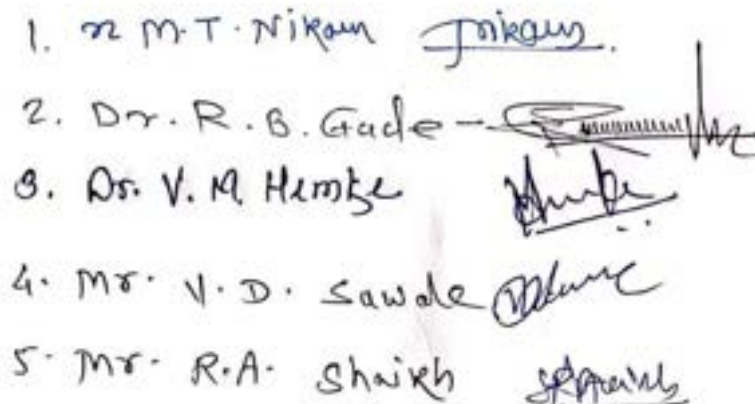 1. M.T. Nikam
2. Dr. R. B. Gade -
3. Dr. V. M. Hemke
4. Mr. V. D. Sawde
5. Mr. R.A. Shaikh